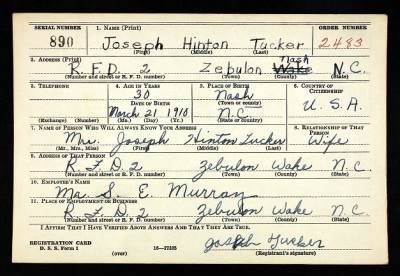 SERIAL NUMBER 1. NAME (Print) ORDER NUMBER
890 Joseph Hinton Tucker 2483
(First) (Middle) (Last)
2. ADDRESS (Print) Nash
R.F.D. 2 Zebulon Wake N.C.
(Number and street or R. F. D. number) (Town) (County) (State)
3. TELEPHONE 4. AGE IN YEARS 5. PLACE OF BIRTH 6. COUNTRY OF CITIZENSHIP
30 Nash
DATE OF BIRTH (Town or county)
March 21 1910 N.C. U.S.A.
(Exchange) (Number) (Mo.) (Day) (Yr.) (State or country)
7. NAME OF PERSON WHO WILL ALWAYS KNOW YOUR ADDRESS 8. RELATIONSHIP OF THAT PERSON
Mrs. Joseph Hinton Tucker Wife
(Mr., Mrs., Miss) (First) (Middle) (Last)
9. ADDRESS OF THAT PERSON
R.F.D.2 Zebulon Wake N.C.
(Number and street or R. F. D. number) (Town) (County) (State)
10. EMPLOYER'S NAME
Mr. S. E. Murray
11. PLACE OF EMPLOYMENT OR BUSINESS
R.F.D.2 Zebulon Wake N.C.
(Number and street or R. F. D. number) (Town) (County) (State)
I AFFIRM THAT I HAVE VERIFIED ABOVE ANSWERS AND THAT THEY ARE TRUE.
REGISTRATION CARD
D. S. S. Form 1 16—17105 Joseph Tucker
(over) (Registrant's signature)